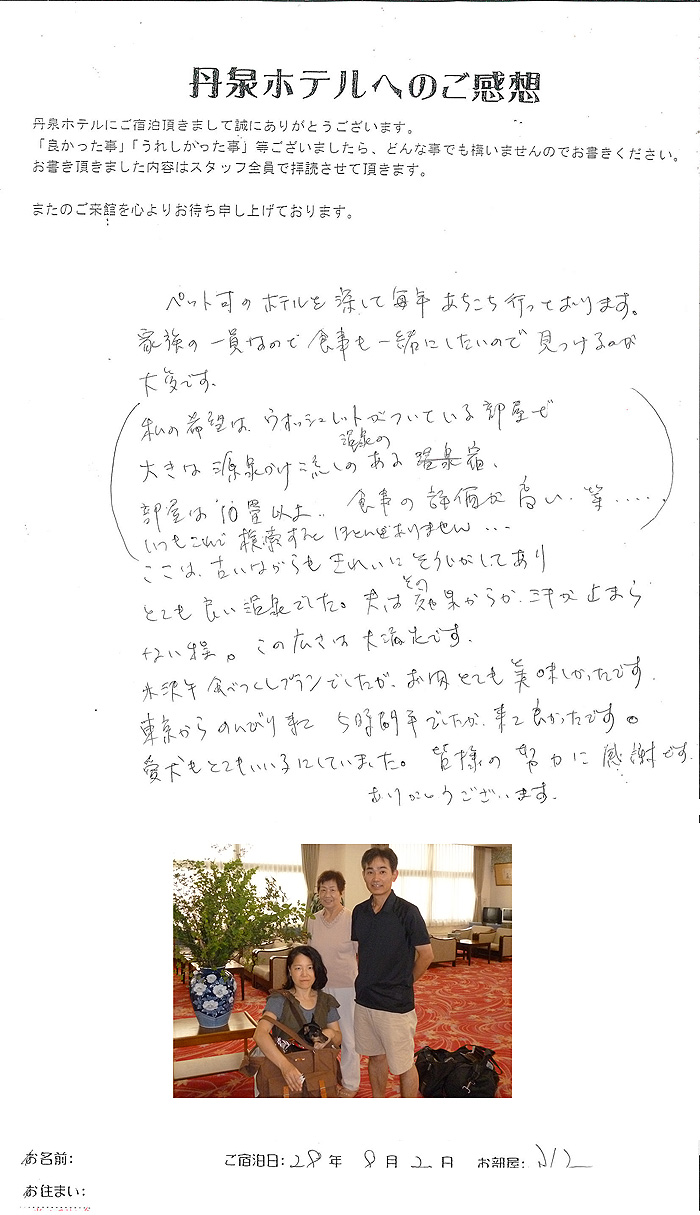 丹泉ホテルへのご感想
丹泉ホテルにご宿泊頂きまして誠にありがとうございます。
「良かった事」「うれしかった事」等ございましたら、どんな事でも構いませんのでお書きください。
お書き頂きました内容はスタッフ全員で拝読させて頂きます。
またのご来館を心よりお待ち申し上げております。
ペット可のホテルを探して毎年あちこち行っております。
家族の一員なので食事も一緒にしたいので見つけるのが
大変です。
私の希望は、ウオッシュレットがついている部屋で
大きな源泉かけ流しの温泉のある宿、
部屋は10畳以上、食事の評価が高い、等.....
いつもこれで検索すると ほとんどありません...
ここは、古いながらもきれいにそうじがしてあり
とても良い温泉でした。夫はその効果からか、汗が止まら
ない程。この広さは大満足です。
米沢牛食べつくしプランでしたが、お肉とても美味しかったです。
東京からのんびり来て 5時間半でしたが、来て良かったです。
愛犬もとてもいい子にしていました。皆様の努力に感謝です。
ありがとうございます。
お名前:
ご宿泊日: 28年 8月 2日 お部屋:
お住まい: